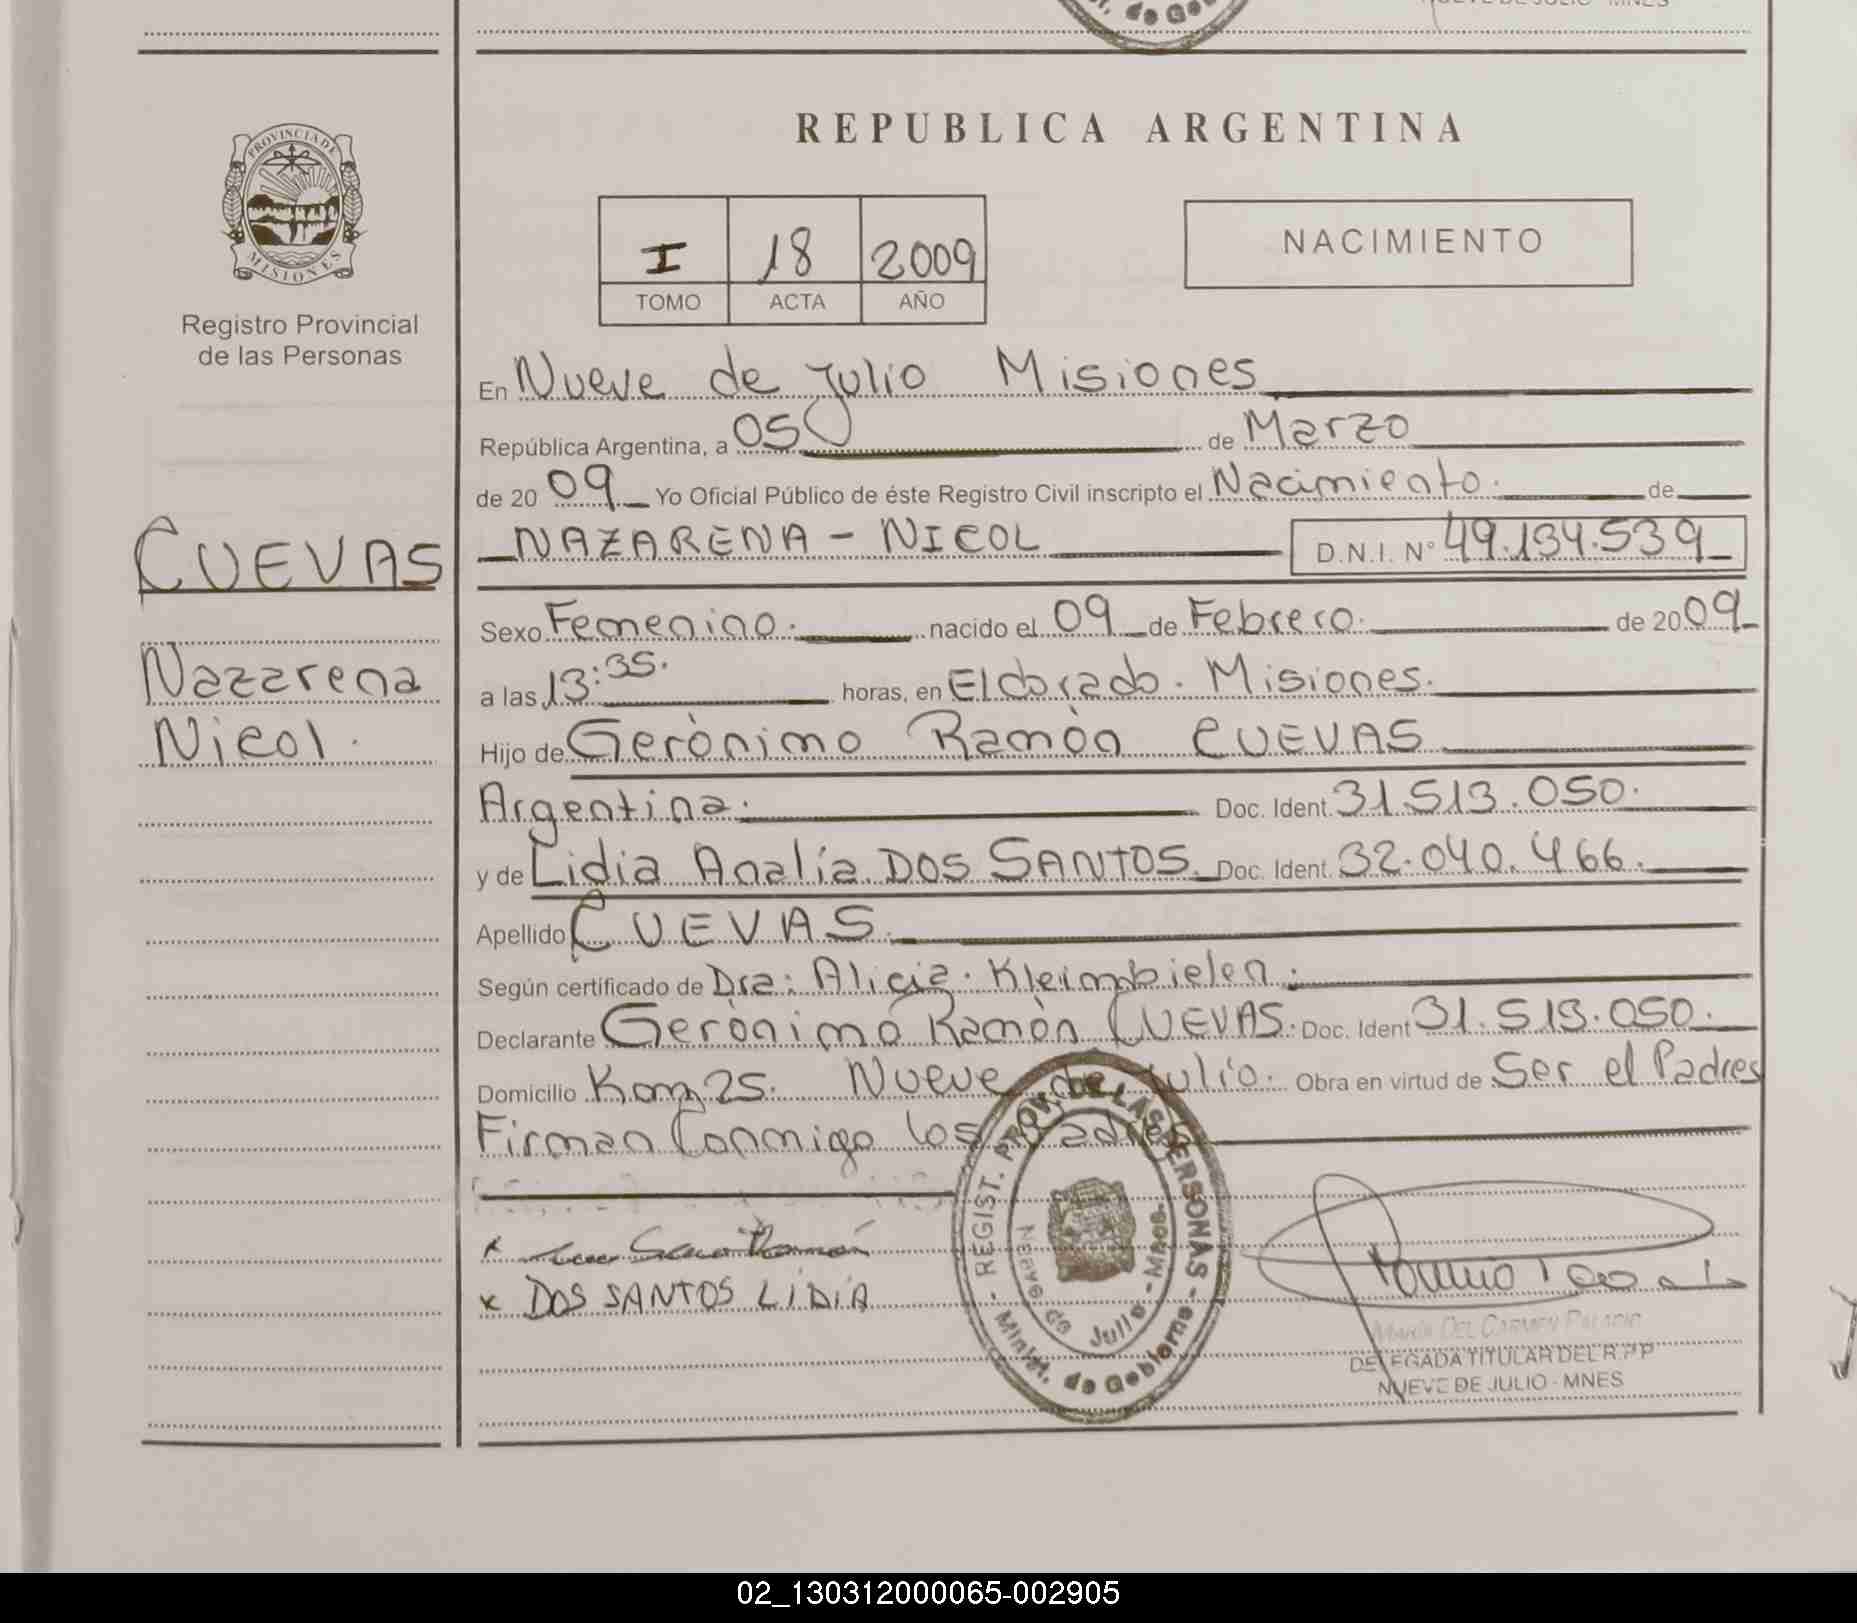 PROVINCIA DE
MISIONES
Registro Provincial
de las Personas
CUEVAS
Nazarena
Nicol.
REPUBLICA ARGENTINA
I 18 2009
TOMO ACTA AÑO
NACIMIENTO
En Nueve de Julio Misiones
República Argentina, a 05 de Marzo
de 20 09 Yo Oficial Público de éste Registro Civil inscripto el Nacimiento. de
NAZARENA - NICOL D.N.I. N° 49.134.539
Sexo Femenino. nacido el 09 de Febrero. de 20 09
a las 13:35. horas, en Eldorado. Misiones.
Hijo de Gerònimo Ramòn CUEVAS
Argentina. Doc. Ident. 31.513.050.
y de Lidia Analía DOS SANTOS. Doc. Ident. 32.040.466.
Apellido CUEVAS.
Según certificado de Dra: Alicia. Kleimbielen.
Declarante Gerònimo Ramòn CUEVAS. Doc. Ident 31.513.050.
Domicilio Km 25. Nueve de Julio. Obra en virtud de Ser el Padres
Firman Conmigo los Padres
REGIST. PROV. DE LAS PERSONAS - Minist. de Gobierno -
Nueve de Julio - Mnes.
x Ramón
x DOS SANTOS LIDIA
MARIA DEL CARMEN PALACIO
DELEGADA TITULAR DEL R.P.P
NUEVE DE JULIO - MNES
02_130312000065-002905